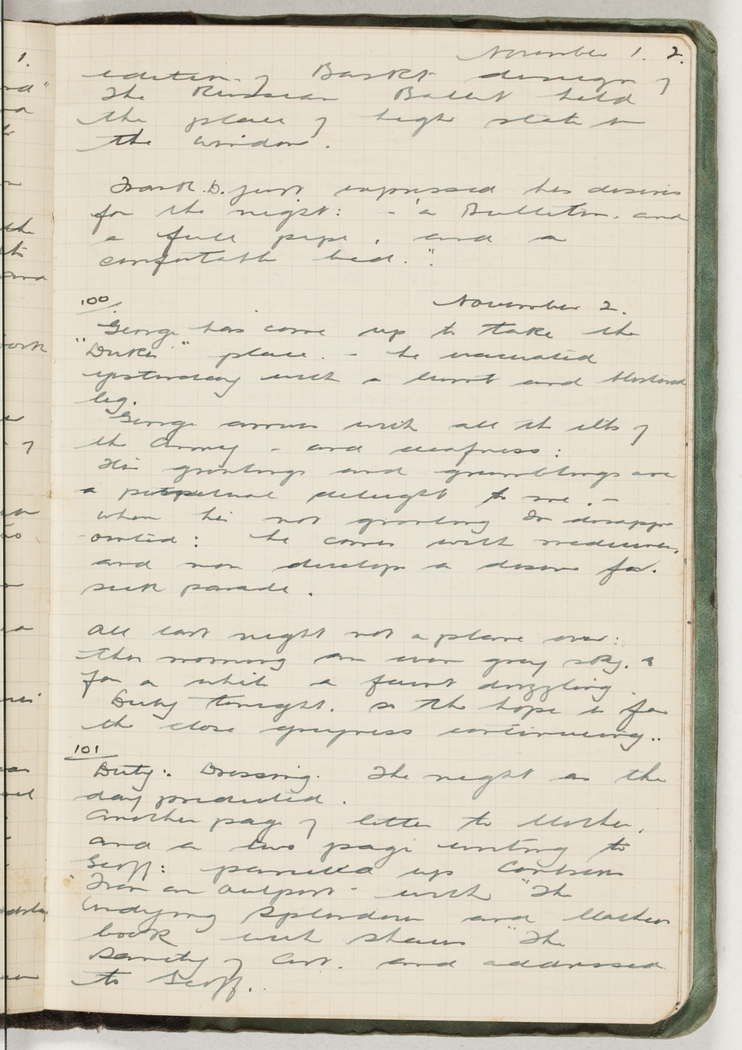 November 1. 2.
edition of Bakst design of
The Russian Ballet held
the place of high state in
the window.
Frank. D. just expressed his desires
for the night: - "a Bulletin, and
a full pipe, and a
comfortable bed.".
100/.
November 2.
George has come up to take the
"Duke's" place. - he evacuated
yesterday with a burnt and blistered
leg.
George arrives with all the ills of
the Army - and deafness:
His gruntings and grumblings are
a perpetual delight to me. -
when he's not grunting I'm disapp-
-ointed: he comes with medicines,
and now develops a desire for
sick parade.
All last night not a plane over:
this morning an even grey sky, &
for a while a faint drizzling.
Duty tonight. so the hope is for
the close greyness continuing..
101
Duty: Dressing. The night as the
day predicted.
Another page of letter to Mother,
and a two page writing to
Geoff: parcelled up
"From an Outpost" with "The
Undying Splendour and Mother's
book with "The
Sanity of Art. and addressed
to Geoff..
1.